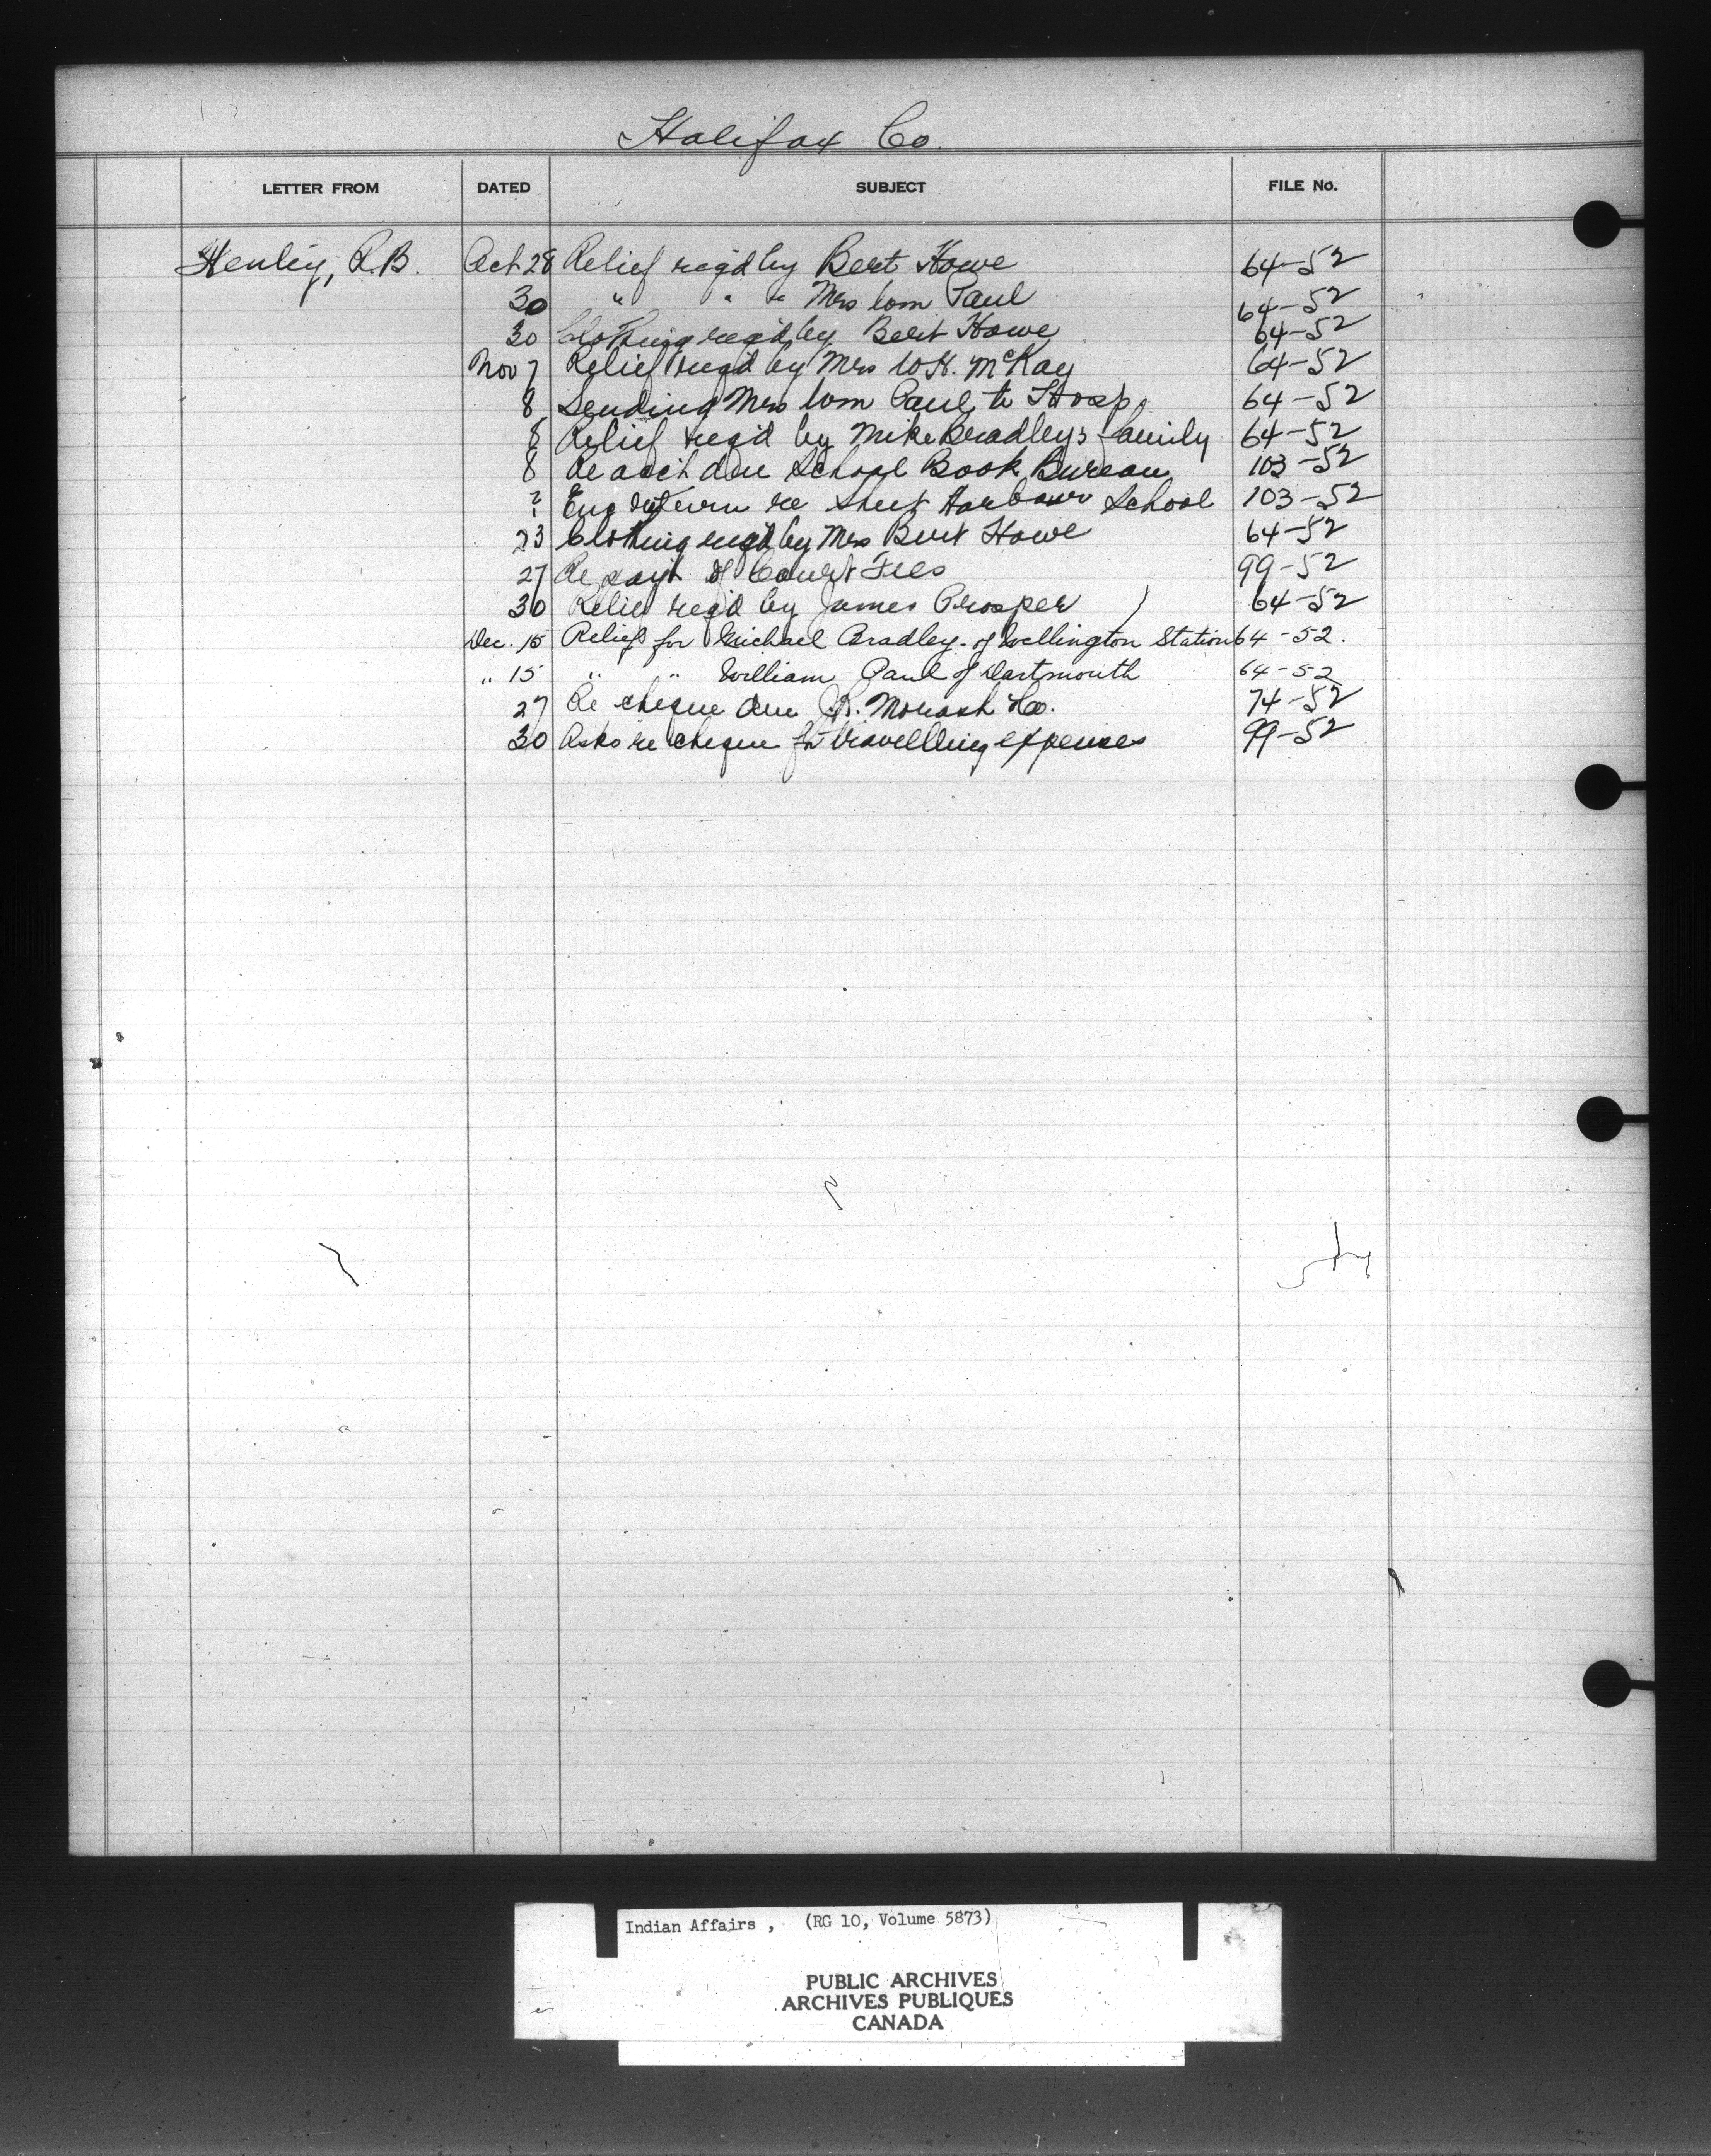 Halifax Co.
LETTER FROM DATED SUBJECT FILE No.
Henley, R.B. Oct 28 Relief req'd by Bert Howe 64-52
30 " " " Mrs Wm Paul 64-52
30 Clothing req'd by Bert Howe 64-52
Nov 7 Relief req'd by Mrs W.H. McKay 64-52
8 Sending Mrs Wm Paul to Hosp. 64-52
8 Relief req'd by Mike Bradley's family 64-52
8 Re acct due School Book Bureau 103-52
? Enc return re Sheet Harbour School 103-52
23 Clothing req'd by Mrs Bert Howe 64-52
27 Re payt of Court Fees 99-52
30 Relief req'd by James Prosper 64-52
Dec. 15 Relief for Michael Bradley of Wellington Station 64-52.
" 15 " " William Paul of Dartmouth 64-52
27 Re cheque due Co. 74-52
30 Asks re cheque for travelling expenses 99-52
Indian Affairs , (RG 10, Volume 5873)
PUBLIC ARCHIVES
ARCHIVES PUBLIQUES
CANADA